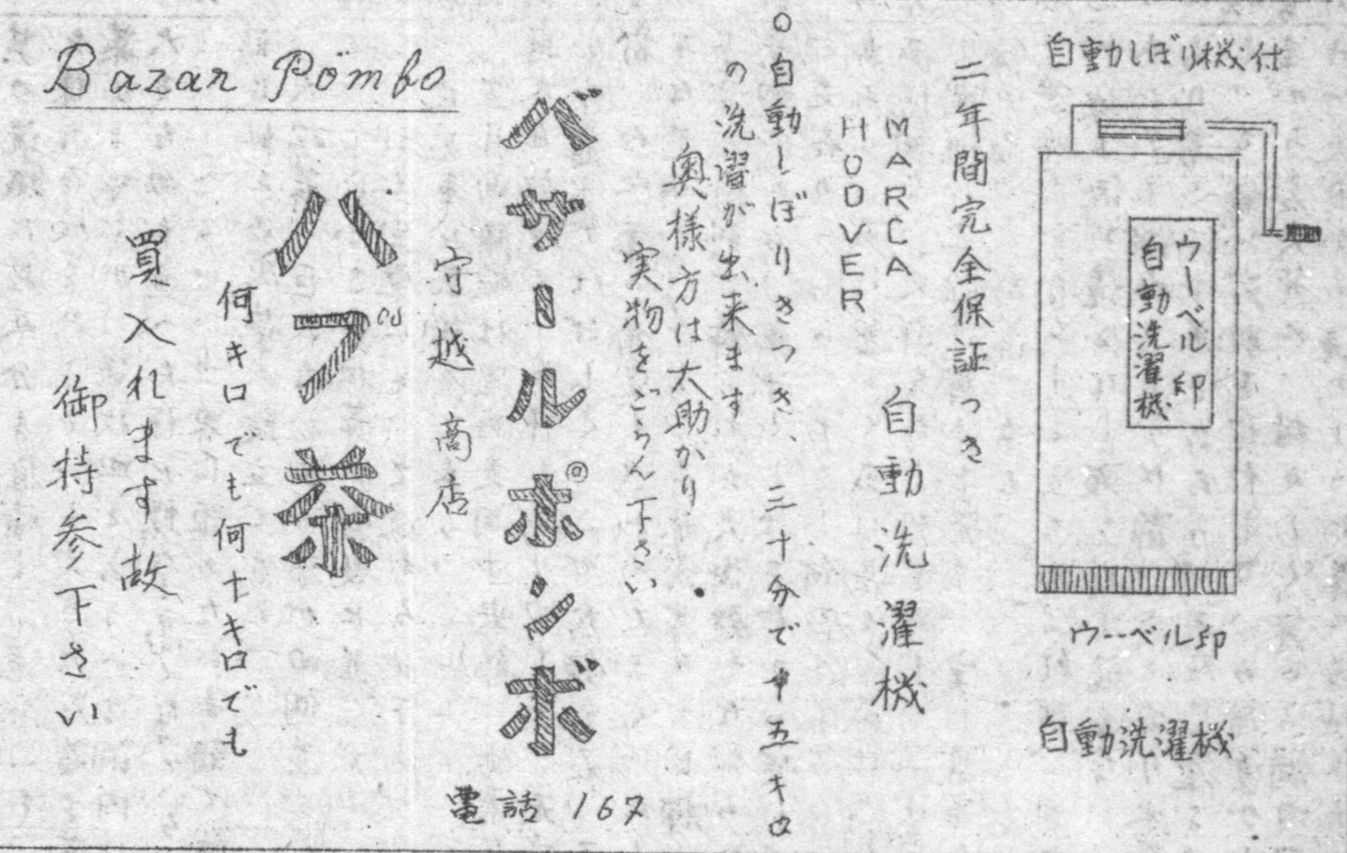 自動しぼり機付
ウーベル印
自動洗濯機
ウーベル印
自動洗濯機
二年間完全保証つき
MARCA
HOOVER
自動洗濯機
○自動しぼりきつき、三十分で十五キロ
の洗濯が出来ます
奥様方は大助かり
実物をごらん下さい
バザールポンボ
守越商店
電話167
Bazar Pömbo
ハブ茶
何キロでも何十キロでも
買入れます故
御持参下さい